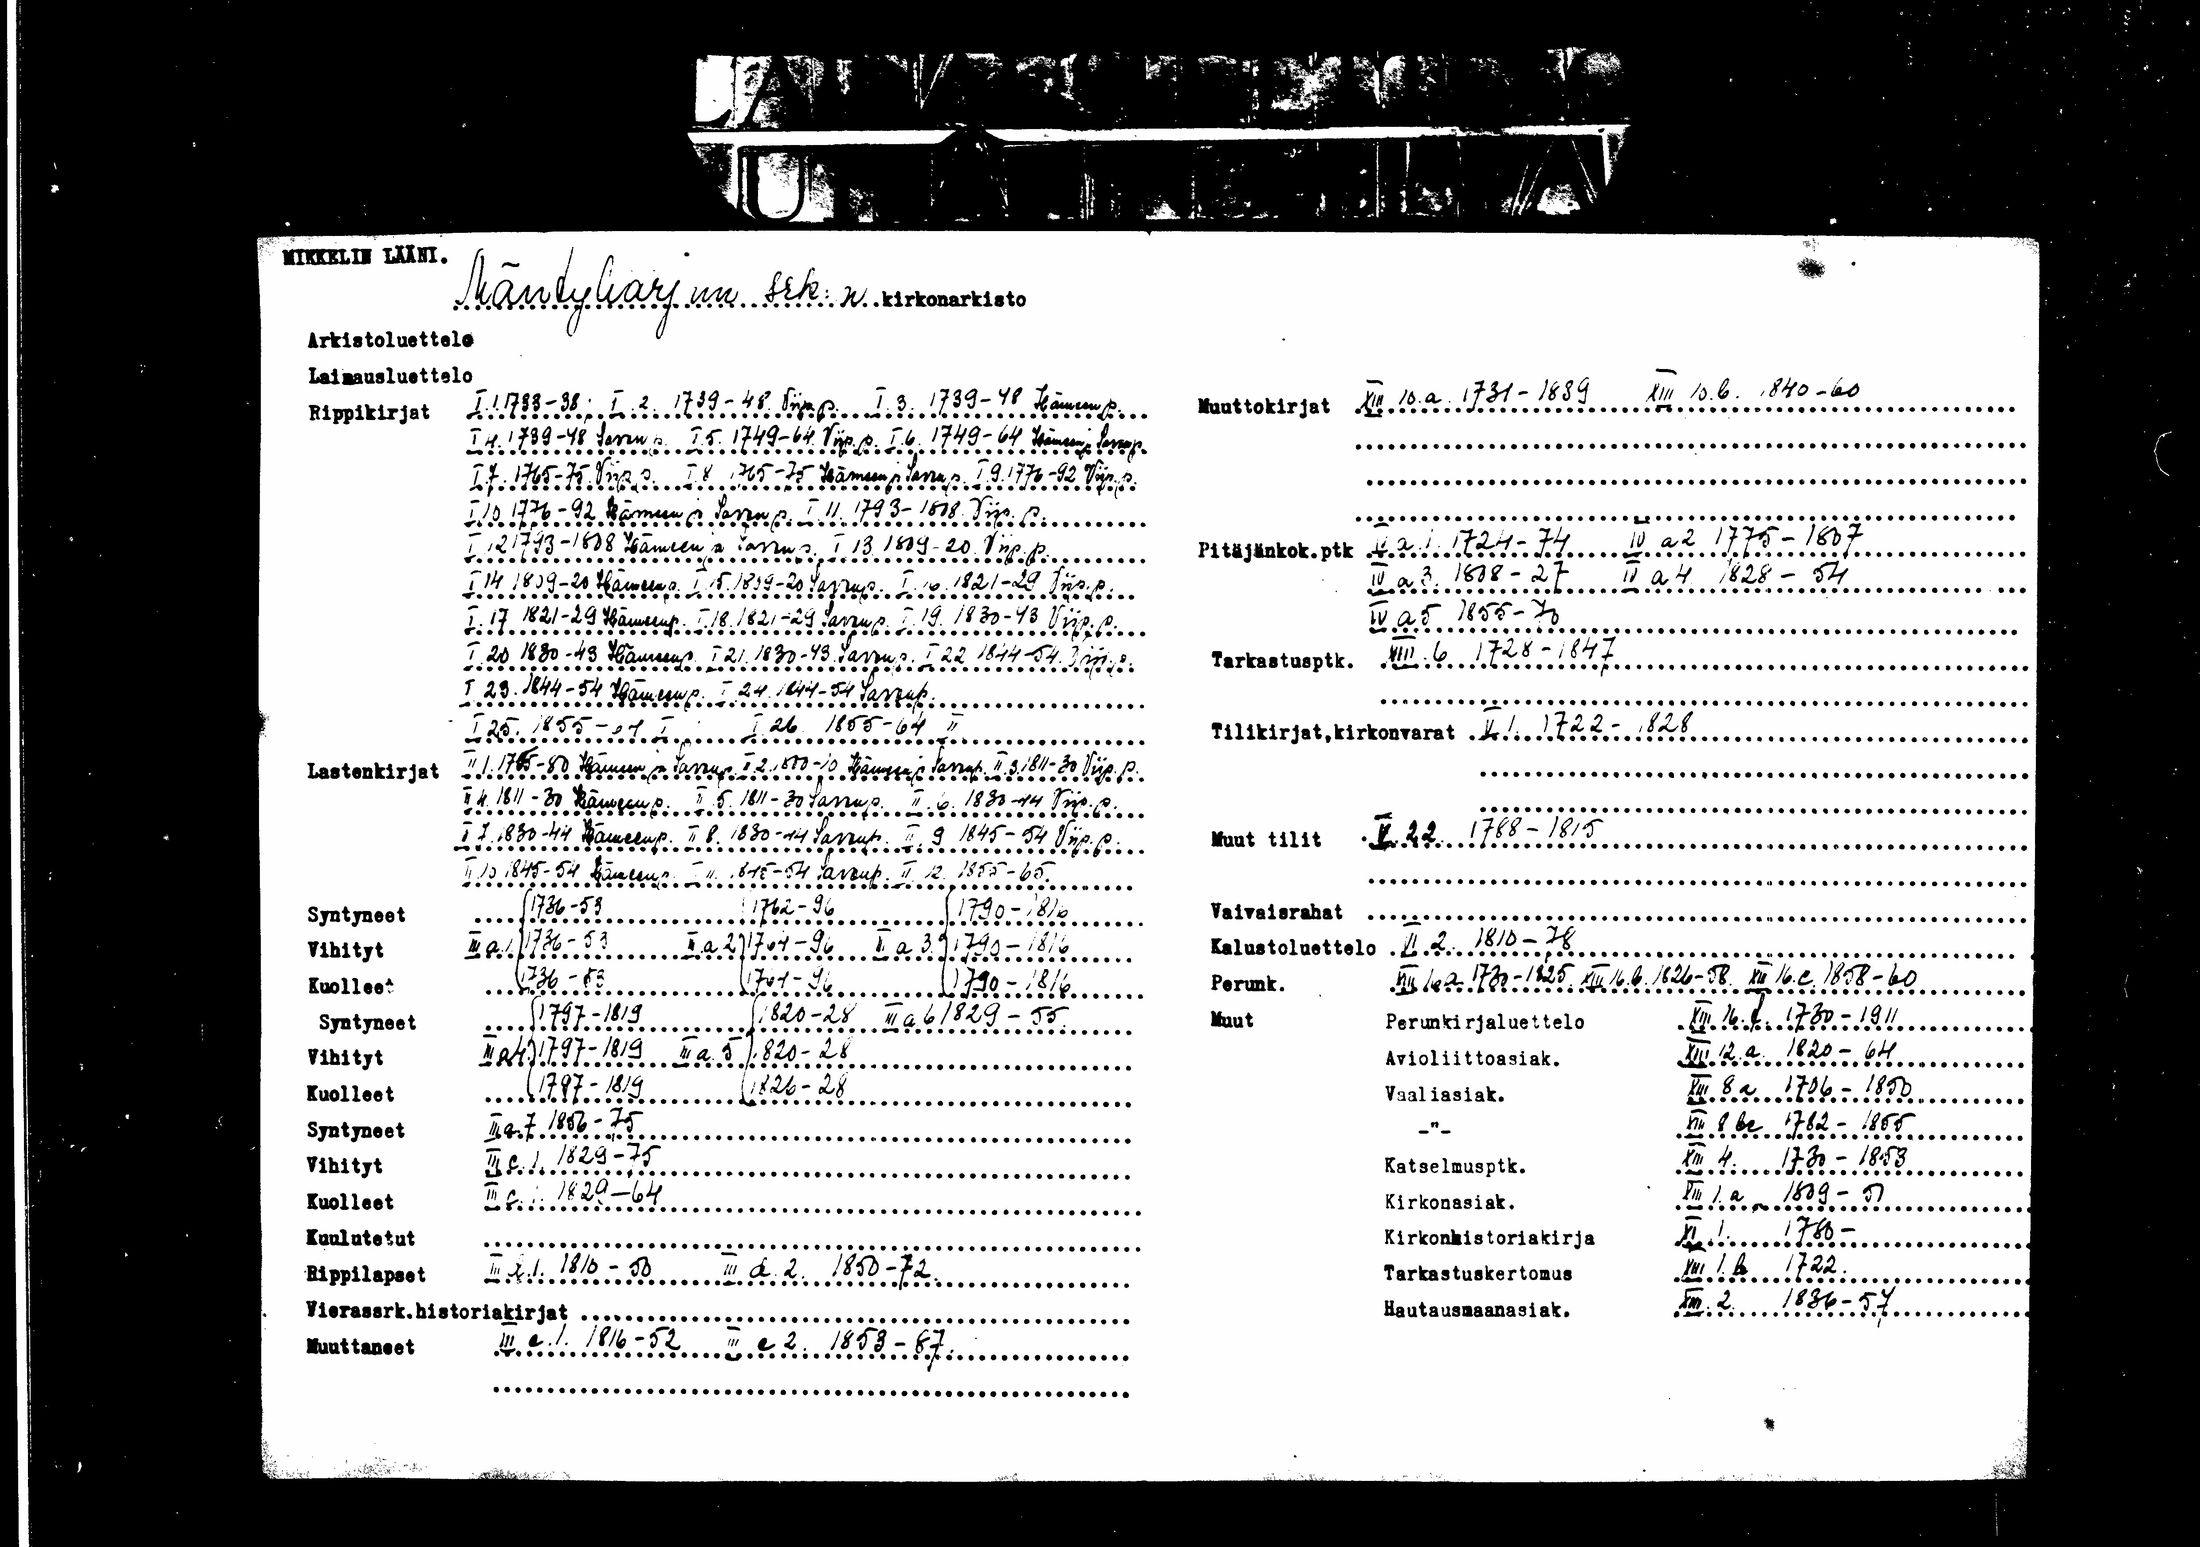 MIKKELIN LÄÄNI.
Mäntyharjun srk:n kirkonarkisto
Arkistoluettelo
Lainausluettelo
Rippikirjat I.1.1733-38; I.2. 1739-48 Viip.p. I.3. 1739-48 Hämeen p.
I 4. 1739-48 Savon p. I.5. 1749-64 Viip.p. I.6. 1749-64 Hämeen ja Savon p.
I.7. 1765-75 Viip.p. I.8 1765-75 Hämeen ja Savon p. I 9. 1776-92 Viip.p.
I.10 1776-92 Hämeen ja Savon p. I.11. 1793-1808. Viip.p.
I 12 1793-1808 Hämeen ja Savon p. I 13. 1809-20. Viip.p.
I 14 1809-20 Hämeen p. I.15. 1809-20 Savon p. I.16. 1821-29 Viip.p.
I.17 1821-29 Hämeen p. I.18. 1821-29 Savon p. I.19. 1830-43 Viip.p.
I.20 1830-43 Hämeen p. I 21. 1830-43 Savon p. I 22 1844-54. Viip.p.
I 23. 1844-54 Hämeen p. I 24. 1844-54 Savon p.
I 25. 1855-64 I I.26. 1855-64 II
Lastenkirjat II 1. 1765-80 Hämeen ja Savon p. II 2. 1800-10 Hämeen ja Savon p. II.3. 1811-30 Viip.p.
II 4. 1811-30 Hämeen p. II.5. 1811-30 Savon p. II.6. 1830-44 Viip.p.
II 7. 1830-44 Hämeen p. II 8. 1830-44 Savon p. II.9 1845-54 Viip.p.
II 10 1845-54 Hämeen p. II 11. 1845-54 Savon p. II.12. 1855-65.
Syntyneet 1736-53 1762-96 1790-1816
Vihityt III a.1. 1736-53 II a 2 1764-96 II a 3. 1790-1816
Kuolleet 1736-53 1764-96 1790-1816
Syntyneet 1797-1819 1820-28 III a 6 1829-55.
Vihityt III a 4. 1797-1819 III a.5 1820-28
Kuolleet 1797-1819 1826-28
Syntyneet III a.7 1856-75
Vihityt III c.1. 1829-75
Kuolleet III c.1. 1829-64
Kuulutetut
Rippilapset III 1. 1810-50 III d.2. 1850-72.
Vierassrk.historiakirjat
Muuttaneet III e.1. 1816-52 III e 2. 1853-67.
Muuttokirjat XIII 10.a. 1731-1839 XIII 10.b. 1840-60
Pitäjänkok.ptk IV a.1. 1724-74 IV a 2 1775-1807
IV a 3. 1808-27 IV a 4 1828-54
IV a 5 1855-70
Tarkastusptk. XIII.6 1728-1847
Tilikirjat,kirkonvarat V.1. 1722-1828
Muut tilit V.22. 1788-1815
Vaivaisrahat
Kalustoluettelo VI 2. 1810-78
Perunk. XIII 16.a. 1730-1825. XIII 16.b. 1826-58. XIII 16.c. 1858-60
Muut Perunkirjaluettelo XIII.16. 1730-1911
Avioliittoasiak. XIII 12.a. 1820-64
Vaaliasiak. XIII 8 a 1706-1850
-"- XIII 8 bc 1782-1855
Katselmusptk. XIII 4. 1730-1853
Kirkonasiak. XIII 1.a 1809-51
Kirkonhistoriakirja XI.1. 1780-
Tarkastuskertomus XIII 1.b 1722.
Hautausmaanasiak. XIII.2. 1836-57